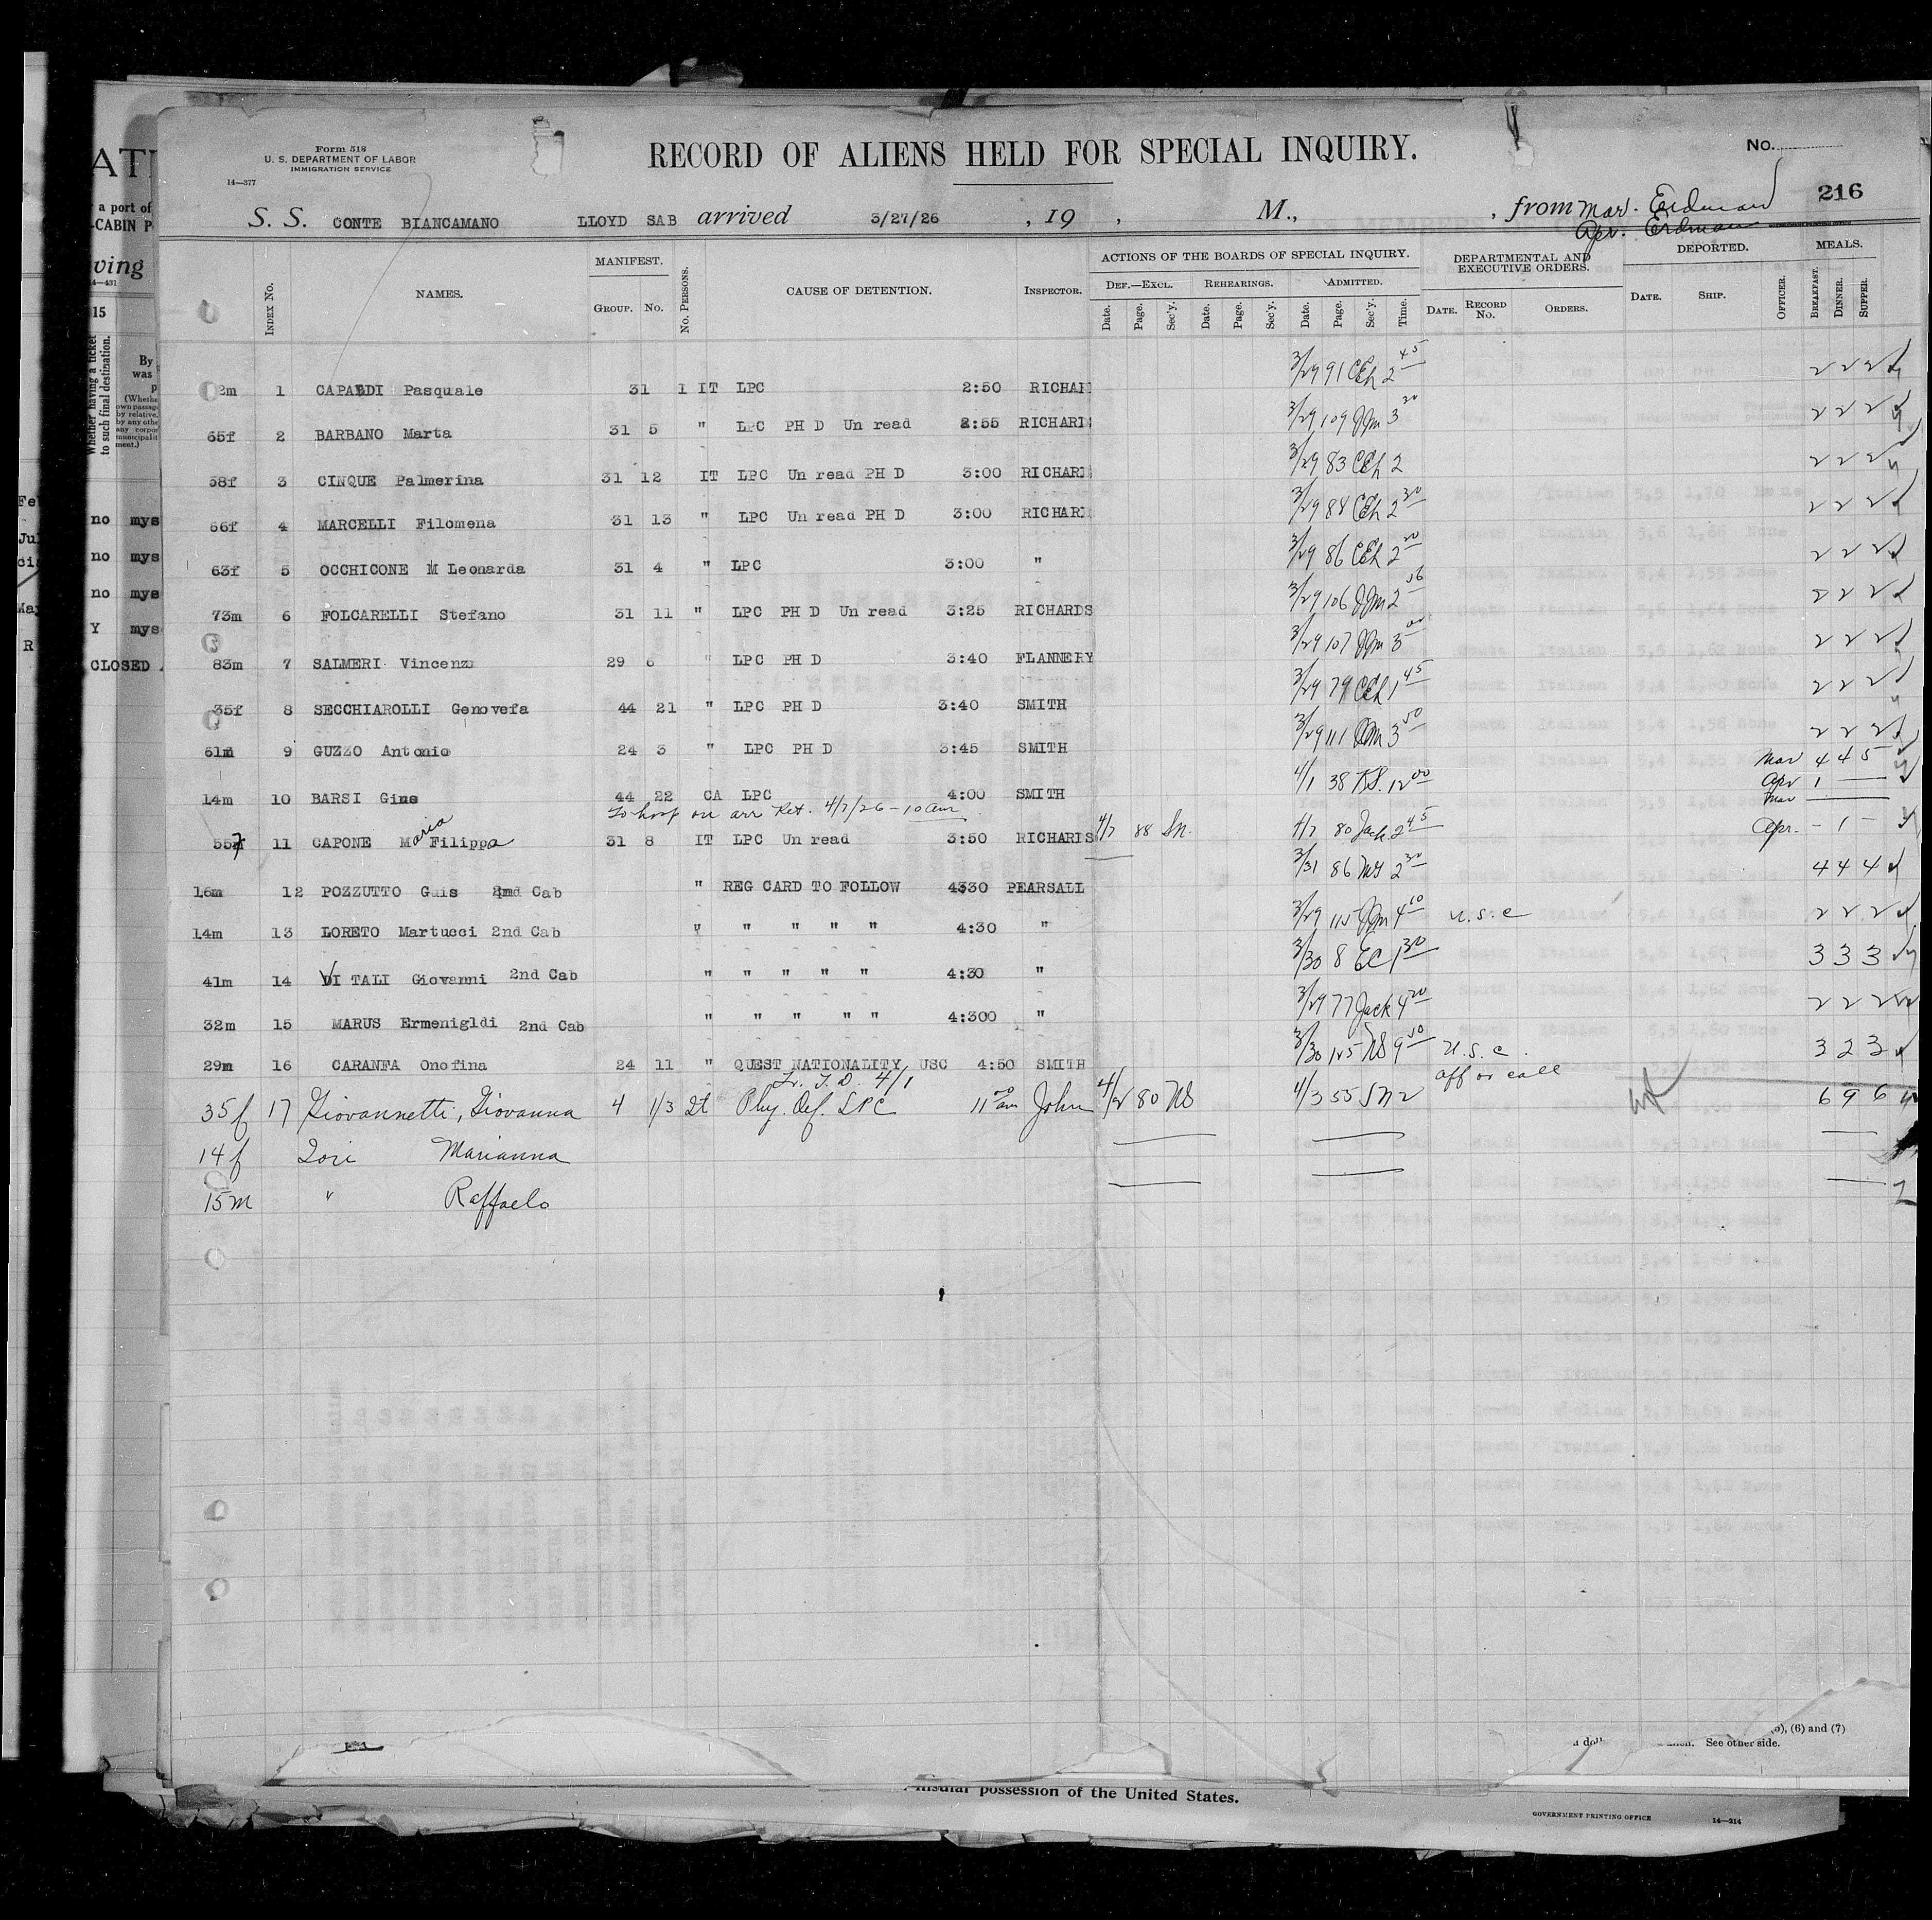 Form 518
U. S. DEPARTMENT OF LABOR
IMMIGRATION SERVICE
14—377
RECORD OF ALIENS HELD FOR SPECIAL INQUIRY.
No.
216
S. S. CONTE BIANCAMANO LLOYD SAB arrived 3/27/26 , 19 , M., , from Mar. Erdman
Apr. Erdman
INDEX No. NAMES. MANIFEST. GROUP. NO. No. PERSONS. CAUSE OF DETENTION. INSPECTOR. ACTIONS OF THE BOARDS OF SPECIAL INQUIRY. DEPARTMENTAL AND EXECUTIVE ORDERS. DEPORTED. MEALS.
DEF.—EXCL. REHEARINGS. ADMITTED.
Date. Page. Sec'y. Date. Page. Sec'y. Date. Page. Sec'y. Time. DATE. RECORD No. ORDERS. DATE. SHIP. OFFICER. BREAKFAST. DINNER. SUPPER.
2m 1 CAPALDI Pasquale 31 1 IT LPC 2:50 RICHAR 3/29 91 CEh 2 45 2 2 2
65f 2 BARBANO Marta 31 5 " LPC PH D Un read 2:55 RICHARD 3/29 109 JJm 3 30 2 2 2
58f 3 CINQUE Palmerina 31 12 IT LPC Un read PH D 3:00 RICHARD 3/29 83 CEh 2 2 2 2
56f 4 MARCELLI Filomena 31 13 " LPC Un read PH D 3:00 RICHARD 3/29 84 CEh 2 30 2 2 2
63f 5 OCCHICONE M Leonarda 31 4 " LPC 3:00 " 3/29 86 CEh 2 20 2 2 2
73m 6 FOLCARELLI Stefano 31 11 " LPC PH D Un read 3:25 RICHARDS 3/29 106 JJm 2 56 2 2 2
83m 7 SALMERI Vincenz 29 6 " LPC PH D 3:40 FLANNERY 3/29 107 JJm 3 00 2 2 2
35f 8 SECCHIAROLLI Genovefa 44 21 " LPC PH D 3:40 SMITH 3/29 79 CEh 1 45 2 2 2
61m 9 GUZZO Antonio 24 3 " LPC PH D 3:45 SMITH 3/29 111 JJm 3 50 2 2 2
14m 10 BARSI Gino 44 22 CA LPC 4:00 SMITH 4/1 38 12 00 Mar 4 4 5
Apr 1
To hosp on arr Ret. 4/7/26 - 10 am
Mar
55f 11 CAPONE Maria Filippa 31 8 IT LPC Un read 3:50 RICHARIS 4/7 88 Sn. 4/7 80 Jack 2 45 Apr. - 1 -
16m 12 POZZUTTO Guis 2nd Cab " REG CARD TO FOLLOW 4330 PEARSALL 3/31 86 2 30 4 4 4
14m 13 LORETO Martucci 2nd Cab " " " " " 4:30 " 3/29 115 JJm 4 10 U.S.C 2 2 2
41m 14 DI TALI Giovanni 2nd Cab " " " " " 4:30 " 3/30 8 EC 1 30 3 3 3
32m 15 MARUS Ermenigldi 2nd Cab " " " " " 4:300 " 3/29 77 Jack 4 20 2 2 2
29m 16 CARANFA Onofina 24 11 " QUEST NATIONALITY USC 4:50 SMITH 3/30 125 NS 9 50 U.S.C. 3 2 3
Tr. T.D. 4/1
aff or call
35f 17 Giovannetti, Giovanna 4 1/3 It Phy. Def. LPC 11 20 am John 4/2 80 NS 4/3 55 SN 2 6 9 6
14f Iori Marianna
15m " Raffaelo
ATI
a port of
-CABIN P
ving
14—431
15
Whether having a ticket to such final destination.
By
was
p
(Whethe
own passag
by relative,
by any othe
any corpo
municipalit
ment.)
no mys
no mys
no mys
Y mys
CLOSED
Jul
May
R
(6) and (7)
See other side.
insular possession of the United States.
GOVERNMENT PRINTING OFFICE
14—214